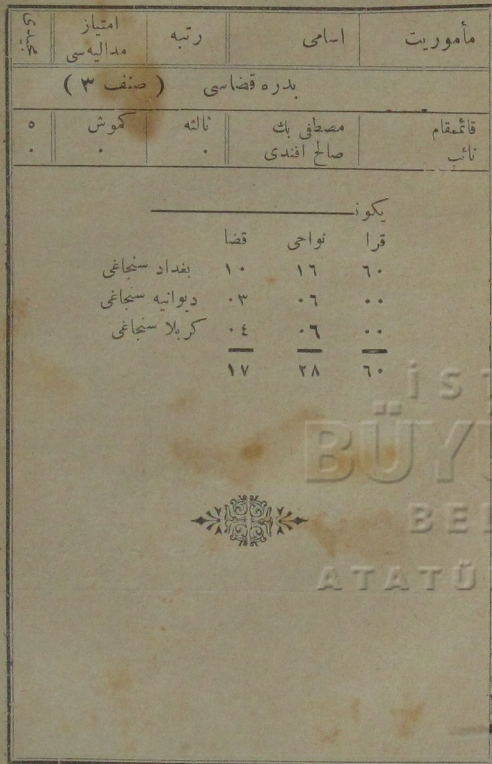 مأموریت اسامی رتبه امتیاز مدالیه‌سی مجیدی
بدره قضاسی ( صنف ٣ )
قائممقام مصطفی بك ثالثه کموش ٥
نائب صالح افندی ٠ ٠ ٠
یکون
قرا نواحی قضا
٦٠ ١٦ ١٠ بغداد سنجاغی
٠٠ ٠٦ ٠٣ دیوانیه سنجاغی
٠٠ ٠٦ ٠٤ کربلا سنجاغی
٦٠ ٢٨ ١٧
İST
BÜYÜ
BEL
ATATÜ